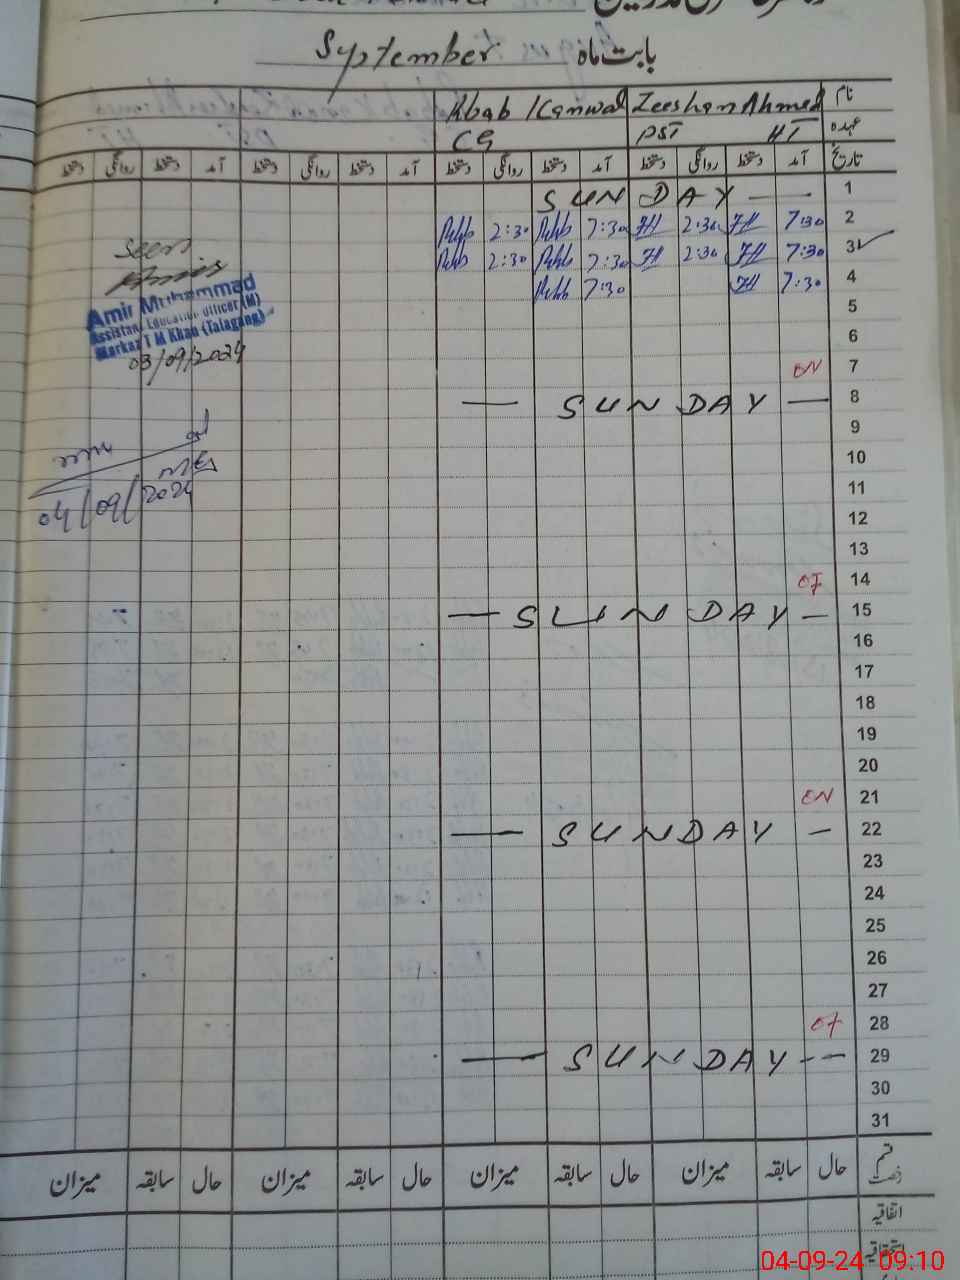 بابت ماہ September
نام Zeeshan Ahmed Kanwal
عہدہ HT PST
تاریخ آمد دستخط روانگی دستخط آمد دستخط روانگی دستخط آمد دستخط روانگی دستخط آمد دستخط روانگی دستخط
1 SUNDAY
2 7:30 2:30 7:30 2:30
3 7:30 2:30 7:30 2:30
4 7:30 7:30
5
6
7 ON
8 SUNDAY
9
10
11
12
13
14 OF
15 SUNDAY
16
17
18
19
20
21 ON
22 SUNDAY
23
24
25
26
27
28 OF
29 SUNDAY
30
31
Seen
Amir Muhammad
Assistant Education Officer (M)
Markaz T M Khan (Talagang)
03/09/2024
04/09/2024
قسم رخصت حال سابقہ میزان حال سابقہ میزان حال سابقہ میزان حال سابقہ میزان
اتفاقیہ
استحقاقیہ
04-09-24 09:10